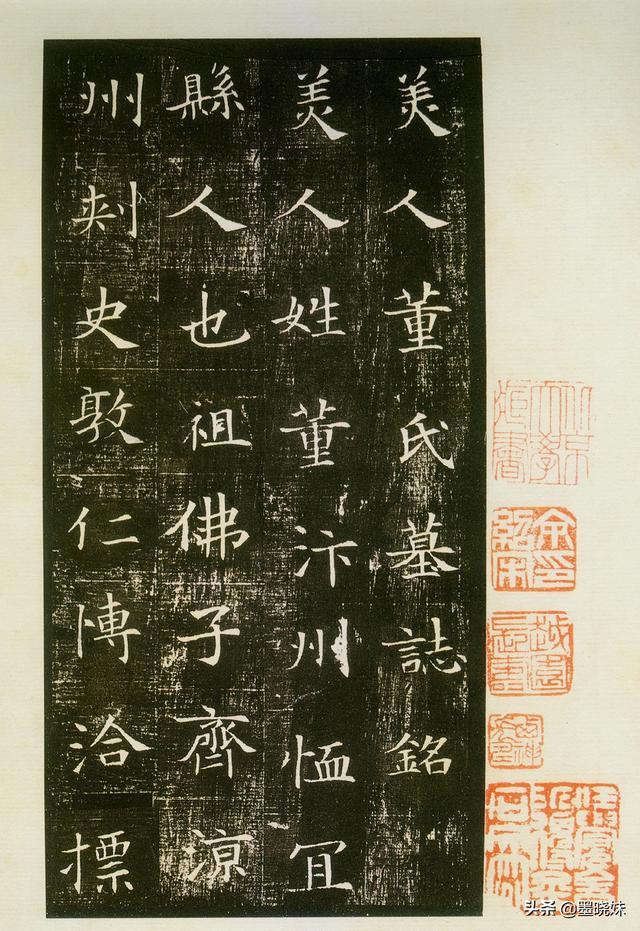 美人董氏墓誌銘
美人姓董汴州恤冝
縣人也祖佛子齊涼
州刾史敦仁愽洽標
余印紹宋
头条 @墨晓妹